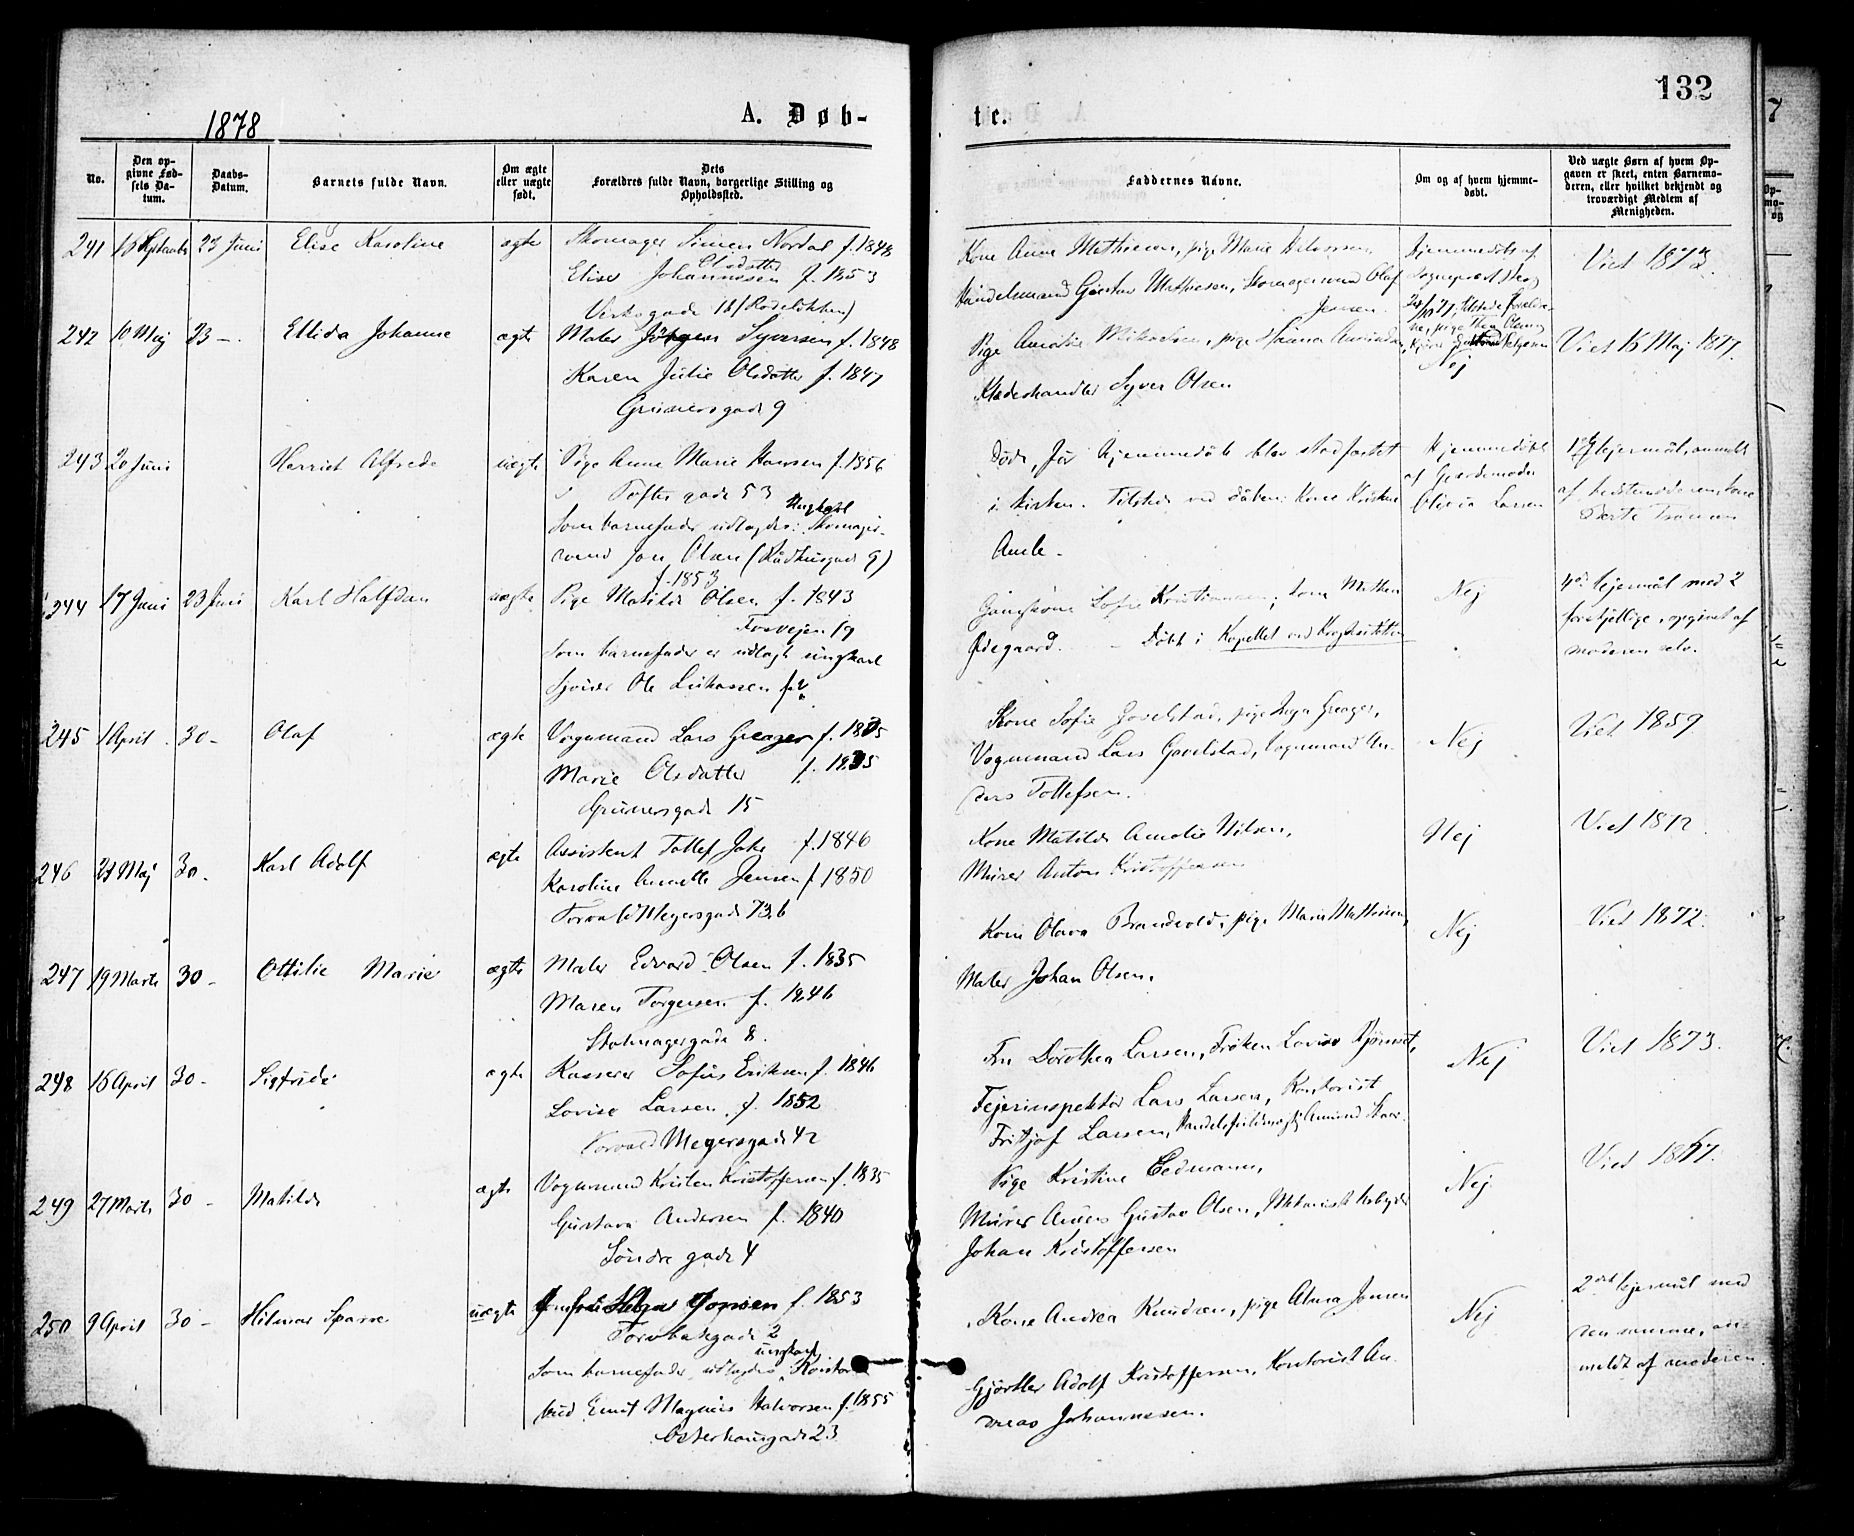 1878
A. Døb-
te.
132
No.
Den op-
givne Fød-
sels Da-
tum.
Daabs-
Datum.
Barnets fulde Navn.
Om ægte
eller uægte
født.
Dets
Forældres fulde Navn, borgerlige Stilling og
Opholdssted.
Faddernes Navne.
Om og af hvem hjemme-
døbt.
Ved uægte Børn af hvem Op-
gaven er skeet, enten Barnemo-
deren, eller hvilket bekjendt og
troværdigt Medlem af
Menigheden.
241 23 Juni Elise Karoline ægte Skomager Simen Nordal f. 1848
Elise Johannesen f. 1853
Olsdatter
18 (Rodeløkken)
Kone Anne Mathiesen, pige Marie Halvorsen,
Handelsmand Gustav Mathiesen, Skomagersvend Olaf
Jensen
Hjemmedøbt af
Sognepræst
Viet 1873.
242 10 Maj 23 - Ellida Johanne ægte Maler Jørgen Syversen f. 1848
Karen Julie Olsdatter f. 1847
Grünersgade 9
Pige Amalie
Klædeshandler Syver Olsen
Nej
Viet 16 Maj 1877.
243 20 Juni Harriet Alfrede uægte Pige Anne Marie Hansen f. 1856
Toftes gade 53
Ungkarl
Som barnefader udlagdes: Skomager-
svend Jon Olsen (Rådhusgade 9)
Døde, før hjemmedåb blev stadfæstet
i kirken. Tilstede ved dåben: Kone Kristine
Aule.
Hjemmedøbt
af Gjordemoder
Olivia Larsen
lejermål, anmeldt
af bedstemoderen, kone
Berte
244 17 Juni 23 Juni Karl Halfdan uægte Pige Matilde Olsen f. 1843
f. 1853
Fossvejen 19
Som barnefader er udlagt ungkarl
Ole Lukassen f. ?
Gangkone Sofie Kristiansen, Tom Mathea
Ødegaard. - Døbt i Kapellet ved Krogstøtten
Nej
4de lejermål med 2
forskjellige, opgivet af
moderen selv.
245 1 April 30 - Olaf ægte Vognmand Lars Greager f. 1835
Marie Olsdatter f. 1835
Grünersgade 15
Kone Sofie Gavelstad, pige Inga Greager,
Vognmand Lars Gavelstad, Vognmand An-
ders Tollefsen.
Nej
Viet 1859
246 21 Maj 30 - Karl Adolf ægte Assistent Tollef f. 1846
Karoline Annette Jensen f. 1850
Torvald Meyersgade 73 b
Kone Matilde Amalie Nilsen,
Murer Anton Kristoffersen
Nej
Viet 1872
247 19 Marts 30 - Ottilie Marie ægte Maler Edvard Olsen f. 1835
Maren Torgersen f. 1846
Stolmagergade 8.
Kone Olava Brandvold, pige Marie Mathiesen,
Maler Johan Olsen.
Nej
Viet 1872.
248 16 April 30 - Sigfride ægte Kasserer Sofus Eriksen f. 1846
Lovise Larsen f. 1852
Torvald Meyersgade 42
Fru Dorothea Larsen, Frøken Lovise
Fejerinspektør Lars Larsen, Kontorist
Fritjof Larsen, Handelsfuldmægtig Amund
Nej
Viet 1873.
249 27 Marts 30 - Matilde ægte Vognmand Kristen Kristoffersen f. 1835
Gustava Andersen f. 1840
Søndre gade 4
Pige Kristine Cedmann,
Murer Anders Gustav Olsen, Mekanisk Arbejder
Johan Kristoffersen
Nej
Viet 1867.
250 9 April 30 - Hilmar Sparre uægte Jomfru Helga Jonsen f. 1853
Torvbakgade 2
ungkarl
Som barnefader udlagdes Kontor-
bud Emil Magnus Halvorsen f. 1855
Osterhausgade 23
Kone Andrea Knudsen, pige Alma Jonsen
Gjørtler Adolf Kristoffersen, Kontorist An-
dreas Johannessen.
Nej
2det lejermål med
den samme, an-
meldt af moderen.